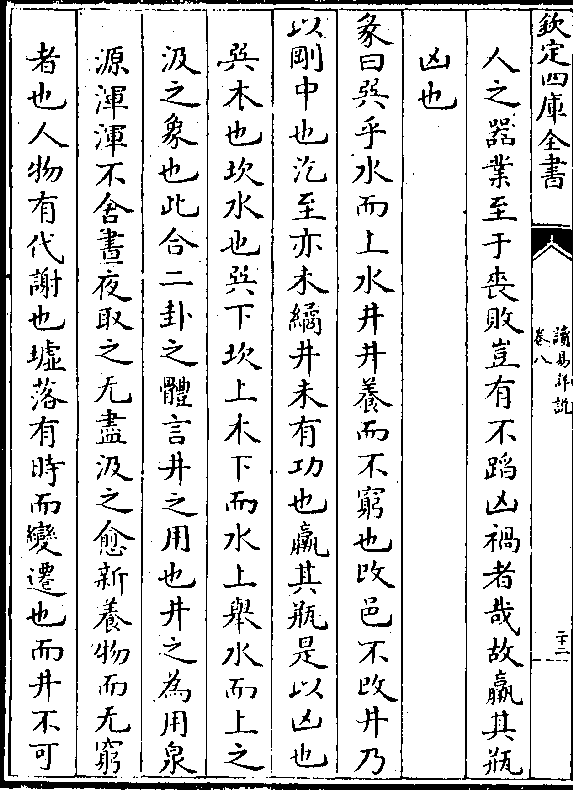 欽定四庫全書
讀易詳說
卷八
二十二
人之器業至于喪敗豈有不蹈凶禍者哉故羸其瓶
凶也
彖曰巽乎水而上水井井養而不窮也改邑不改井乃
以剛中也汔至亦未繘井未有功也羸其瓶是以凶也
巽木也坎水也巽下坎上木下而水上舉水而上之
汲之象也此合二卦之體言井之用也井之為用泉
源渾渾不舍晝夜取之无盡汲之愈新養物而无窮
者也人物有代謝也墟落有時而變遷也而井不可